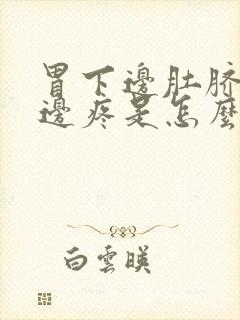 胃下邊肚脐
邊疼是怎麼
白雲暎